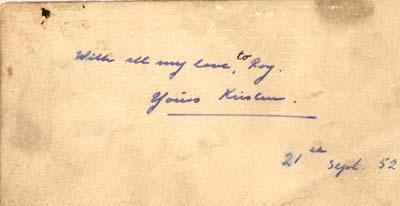 With all my love, to Roy.
Yours Kirsten.
21st Sept. 52